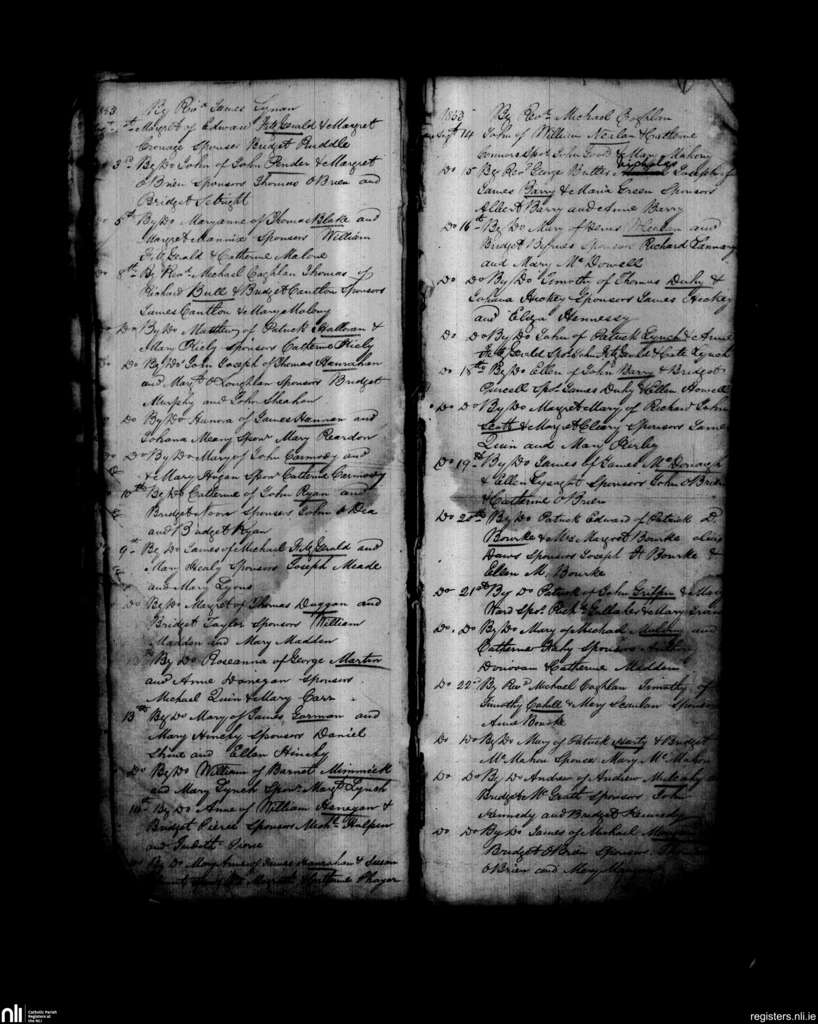 1833 By Revd James Lynan
Margret of Edward FitzGerald & Margret
Sponser Bridget Ruddle
3rd By Do John of John Pender & Margret
O'Brien Sponsors Thomas O'Brien and
Bridget
5th By Do Maryanne of Thomas Blake and
Margret Mannix Sponsors William
FitzGerald & Catherine Malone
8th By Revd Michael Coghlan Thomas of
Richard Bull & Bridget Cantlon Sponsors
James Cantlon & Mary Malony
Do By Do Matthew of Patrick Halloran &
Mary Sponsors Catherine
Do By Do John Joseph of Thomas Hanrahan
and Margt O'Loughlan Sponsors Bridget
Murphy and John Sheahan
Do By Do Hunora of James Hannan and
Johana Meany Sponr Mary Reardon
Do By Do Mary of John Carmody and
& Mary Hogan Sponr Catherine Carmody
10th By Do Catherine of John Ryan and
Bridget Sponsers John O Dea
and Bridget Ryan
9th By Do James of Michael FitzGerald and
Mary Healy Sponsors Joseph Meade
and Mary Lyons
Do By Do Margret of Thomas Duggan and
Bridget Taylor Sponsors William
Madden and Mary Madden
By Do Roseanna of George Martin
and Anne Donegan Sponsors
Michael Quin & Mary Carr
13th By Do Mary of James Gorman and
Mary Hinchy Sponsors Daniel
Shine and Ellen Hinchy
Do By Do William of Barnet Mimmick
and Mary Lynch Sponr Margt Lynch
14th By Do Anne of William Hanegan &
Bridget Pierce Sponsors Michl Halpin
and Judeth
By Do Mary Anne of James Hanrahan & Susan
Catherine Phayer
1833 By Revd Michael Coghlan
Sept 14 John of William Nerlan & Catherine
Connors Spos John & Mary Mahony
Do 15 By Revd George Butler Joseph of
James Barry & Maria Green Sponsors
Albert Barry and Anne Barry
Do 16th By Do Mary of Denis and
Bridget Sponsors Richard Tannary
and Mary Mc Dowell
Do Do By Do Timothy of Thomas Duhy &
Johana Hickey Sponsors James Hickey
and Eliza Hennessy
Do Do By Do John of Patrick Lynch & Anne
FitzGerald Spos John FitzGerald & Cate Lynch
Do 18th By Do Ellen of John Berry & Bridget
Purcell Spos James Duhy & Ellen Howell
Do Do By Do Margret Mary of Richard John
Scott & Margret Cleary Sponsors James
Quin and Mary Kirby
Do 19th By Do James of James McDonagh
& Ellen Lysaght Sponsors John O'Brien
& Catherine O'Brien
Do 20th By Do Patrick Edward of Patrick D
Bourke & Mrs Margret Bourke alias
Daws Sponsors Joseph A Bourke &
Ellen M. Bourke
Do 21st By Do Patrick of John Griffin & Mary
Ward Spos Richd Gallaher & Mary
Do Do By Do Mary of Michael and
Catherine Sponsors
Donovan & Catherine Madden
Do 22nd By Revd Michael Coghlan Timothy of
Timothy Cahill & Mary Scanlan Sponsor
Anne Bourke
Do Do By Do Mary of Patrick Harty & Bridget
McMahon Sponser Mary McMahon
Do Do By Do Andrew of Andrew Mulcahy
Bridget McGrath Sponsors John
Kennedy and Bridget Kennedy
Do Do By Do James of Michael
Bridget O'Brien Sponsors
O'Brien and Mary
nli
Catholic Parish
Registers at
the NLI
registers.nli.ie